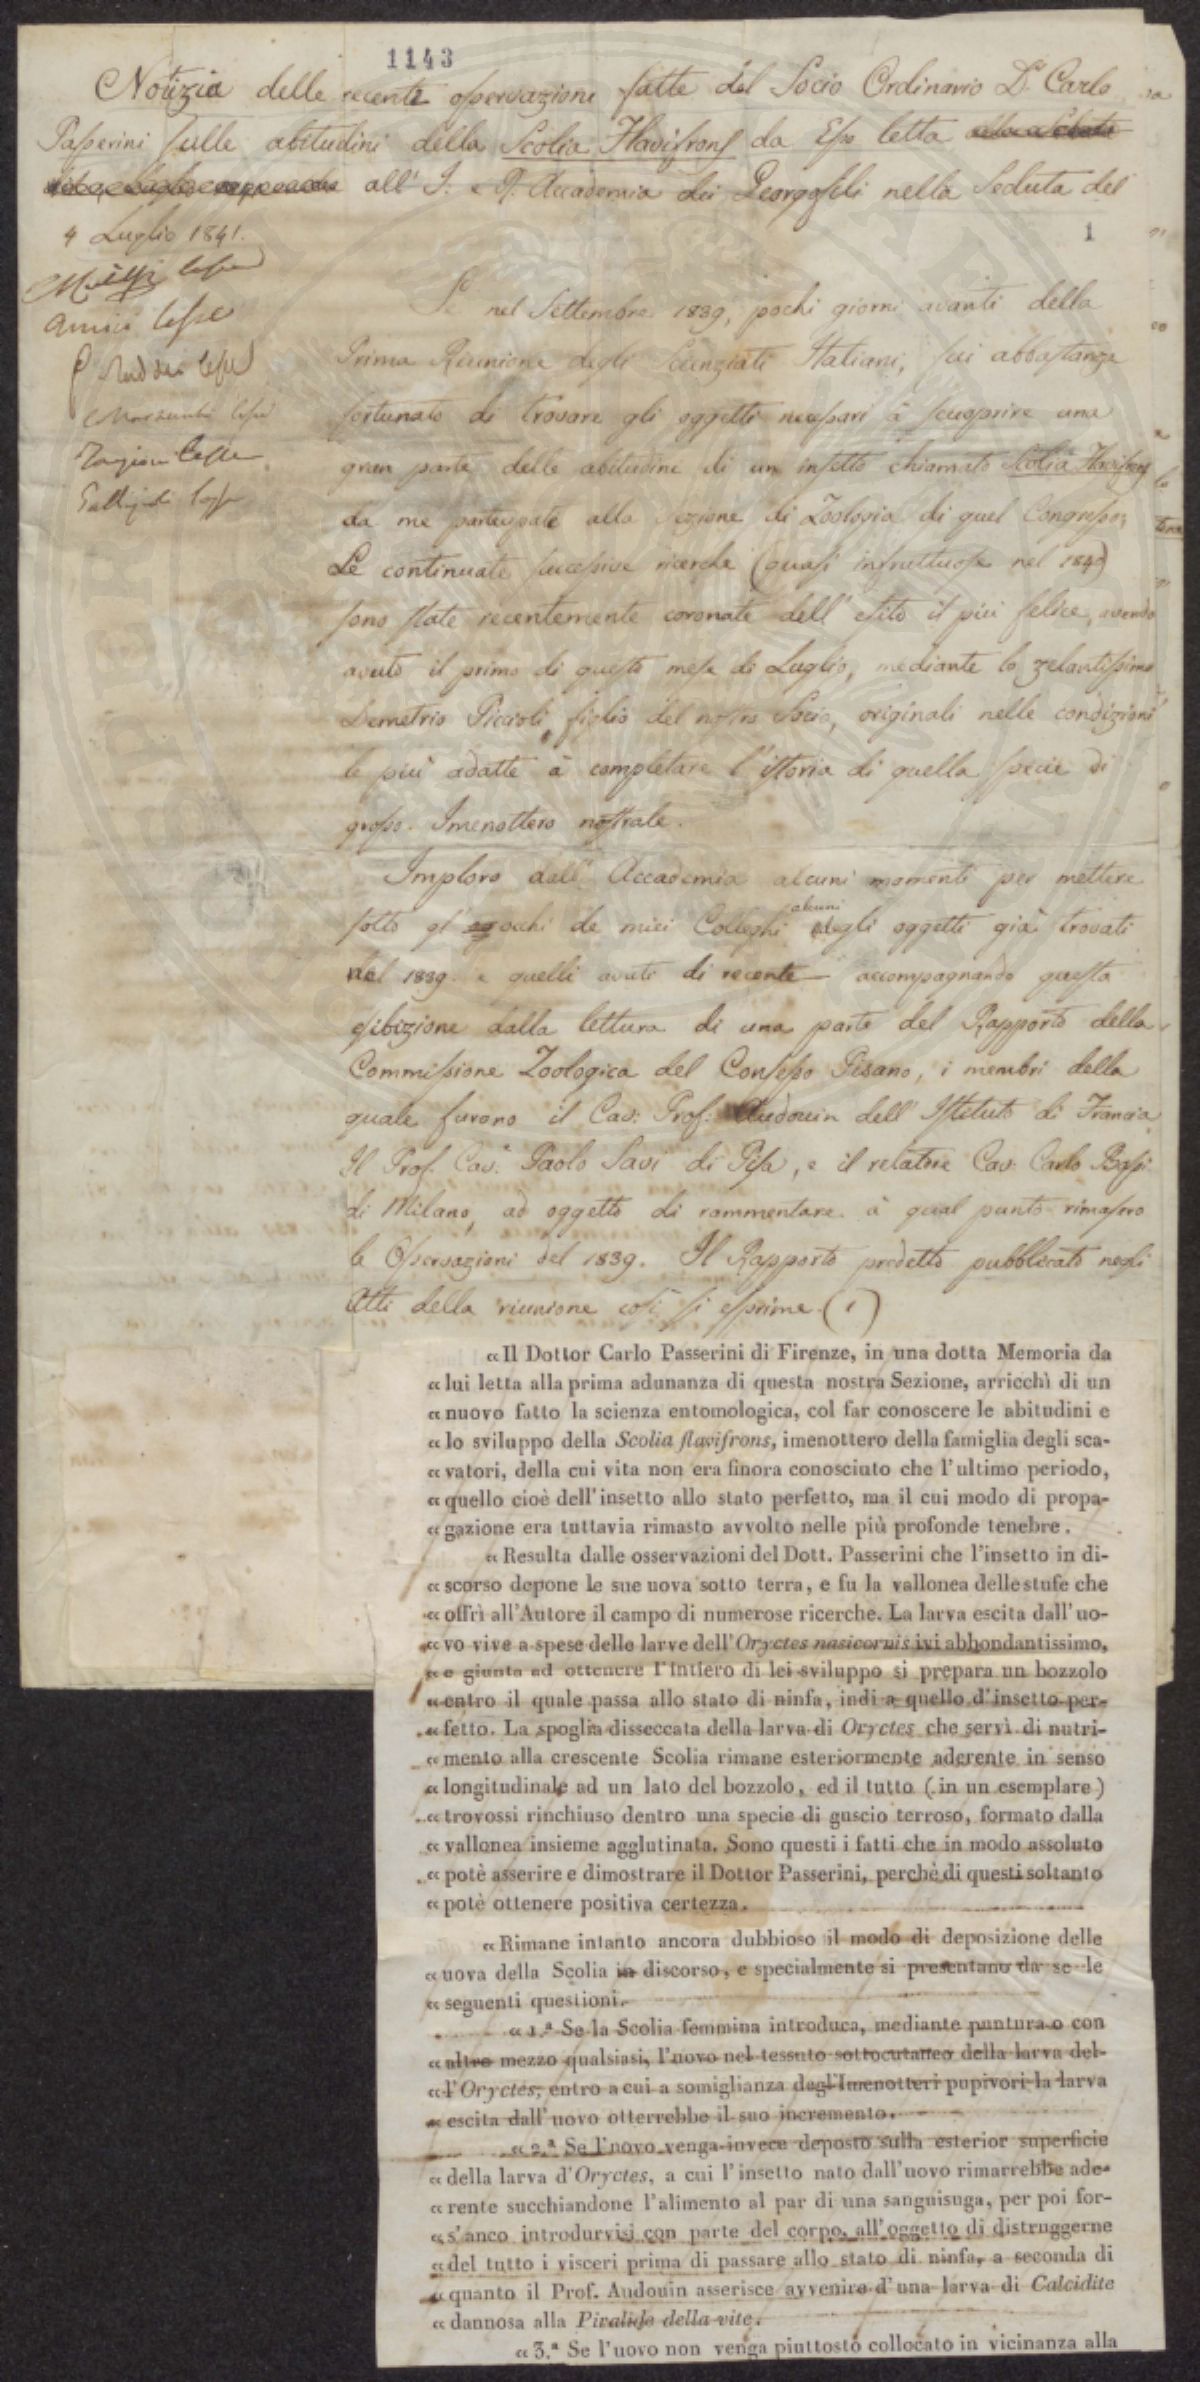 1143
Notizia delle recenti osservazioni fatte dal Socio Ordinario Dr. Carlo
Passerini sulle abitudini della Scolia Flavifrons da Esso letta
all' I. e R. Accademia dei Georgofili nella Seduta del
4 Luglio 1841.
1
lesse
Amici lesse
lesse
lesse
Targioni lesse
Se nel Settembre 1839, pochi giorni avanti della
Prima Riunione degli Scienziati Italiani, fui abbastanza
fortunato di trovare gli oggetti necessari à scuoprire una
gran parte delle abitudini di un insetto chiamato Scolia Flavifrons
da me partecipate alla Sezione di Zoologia di quel Congresso;
Le continuate successive ricerche (quasi infruttuose nel 1840)
sono state recentemente coronate dell' esito il più felice, avendo
avuto il primo di questo mese di Luglio, mediante lo zelantissimo
Demetrio Piccioli figlio del nostro Socio, originali nelle condizioni
le più adatte à completare l'istoria di quella specie di
grosso Imenottero nostrale.
Imploro dall' Accademia alcuni momenti per mettere
sotto gl' occhi de miei Colleghi alcuni degli oggetti già trovati
nel 1839 e quelli avuti di recente accompagnando questa
esibizione dalla lettura di una parte del Rapporto della
Commissione Zoologica del Consesso Pisano, i membri della
quale furono il Cav: Prof: Audouin dell' Istituto di Francia,
Il Prof. Cav. Paolo Savi di Pisa, e il relatore Cav. Carlo Bassi
di Milano, ad oggetto di rammentare à qual punto rimasero
le Osservazioni del 1839. Il Rapporto predetto pubblicato negli
Atti della riunione così si esprime. (1)
«Il Dottor Carlo Passerini di Firenze, in una dotta Memoria da
«lui letta alla prima adunanza di questa nostra Sezione, arricchì di un
«nuovo fatto la scienza entomologica, col far conoscere le abitudini e
«lo sviluppo della Scolia flavifrons, imenottero della famiglia degli sca-
«vatori, della cui vita non era finora conosciuto che l'ultimo periodo,
«quello cioè dell'insetto allo stato perfetto, ma il cui modo di propa-
«gazione era tuttavia rimasto avvolto nelle più profonde tenebre.
«Resulta dalle osservazioni del Dott. Passerini che l'insetto in di-
«scorso depone le sue uova sotto terra, e fu la vallonea delle stufe che
«offrì all'Autore il campo di numerose ricerche. La larva escita dall'uo-
«vo vive a spese delle larve dell'Oryctes nasicornis ivi abbondantissimo,
«e giunta ad ottenere l'intiero di lei sviluppo si prepara un bozzolo
«entro il quale passa allo stato di ninfa, indi a quello d'insetto per-
«fetto. La spoglia disseccata della larva di Oryctes che servì di nutri-
«mento alla crescente Scolia rimane esteriormente aderente in senso
«longitudinale ad un lato del bozzolo, ed il tutto (in un esemplare)
«trovossi rinchiuso dentro una specie di guscio terroso, formato dalla
«vallonea insieme agglutinata. Sono questi i fatti che in modo assoluto
«potè asserire e dimostrare il Dottor Passerini, perchè di questi soltanto
«potè ottenere positiva certezza.
«Rimane intanto ancora dubbioso il modo di deposizione delle
«uova della Scolia in discorso, e specialmente si presentano da se le
«seguenti questioni.
«1.ª Se la Scolia femmina introduca, mediante puntura o con
«altro mezzo qualsiasi, l'uovo nel tessuto sottocutaneo della larva del-
«l'Oryctes, entro a cui a somiglianza degl'Imenotteri pupivori la larva
«escita dall'uovo otterrebbe il suo incremento.
«2.ª Se l'uovo venga invece deposto sulla esterior superficie
«della larva d'Oryctes, a cui l'insetto nato dall'uovo rimarrebbe ade-
«rente succhiandone l'alimento al par di una sanguisuga, per poi for-
«s'anco introdurvisi con parte del corpo, all'oggetto di distruggerne
«del tutto i visceri prima di passare allo stato di ninfa, a seconda di
«quanto il Prof. Audouin asserisce avvenire d'una larva di Calcidite
«dannosa alla Piralide della vite.
«3.ª Se l'uovo non venga piuttosto collocato in vicinanza alla